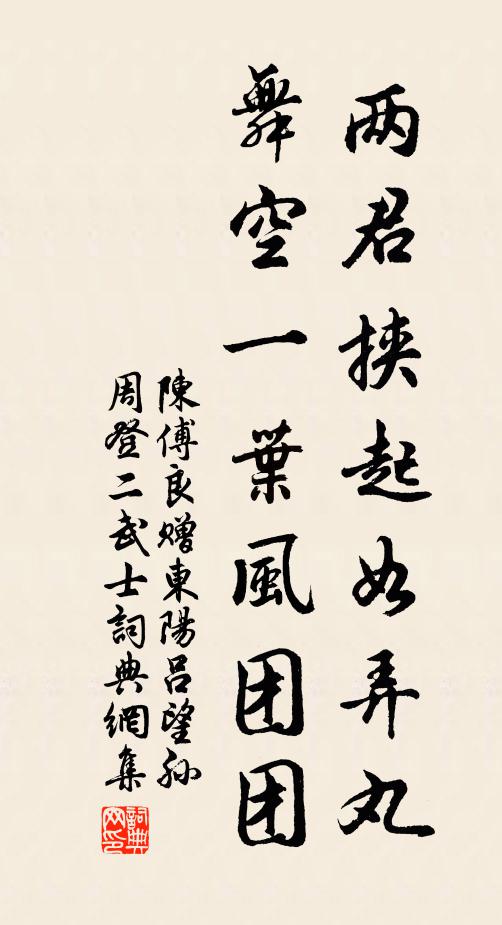 两君挟起如弄丸
舞空一葉風团团
陳傅良贈東陽吕望孫
周登二武士詞典網集
詞典網印